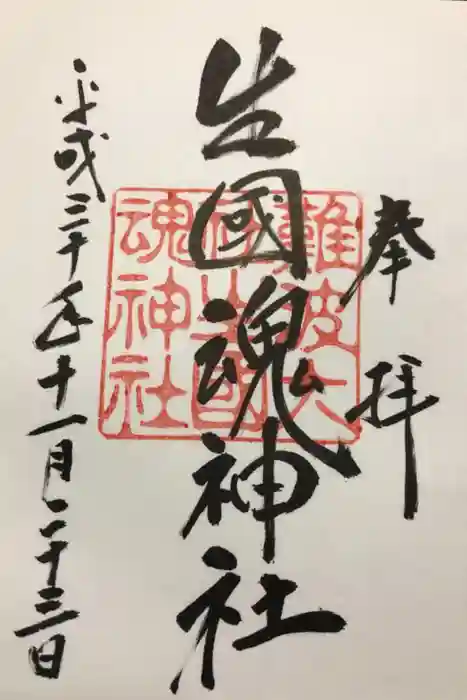 奉拝
生國魂神社
難波大
神生國
魂神社
平成三十年十一月二十三日